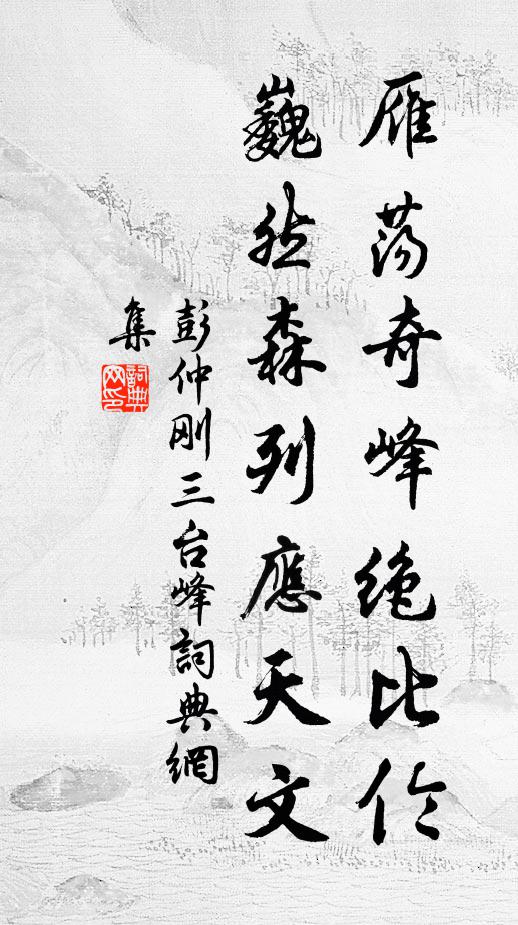 雁荡奇峰絶比伦
巍然森列應天文
彭仲刚三台峰詞典網
集
詞典
网印